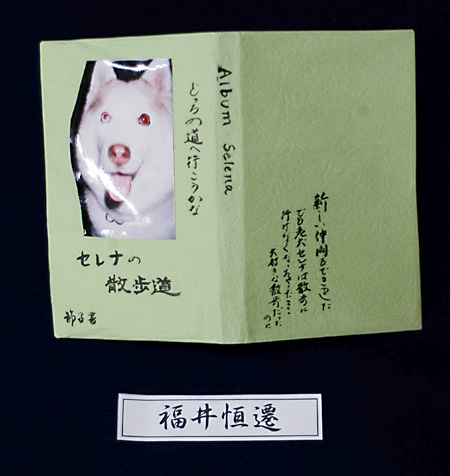 どちらの道へ行こうかな
セレナの
散歩道
Album Selena
新しい仲間もできました
でも老犬セレナは散歩に
行けなくなって
大好きな散歩だった
のに
福井恒遷